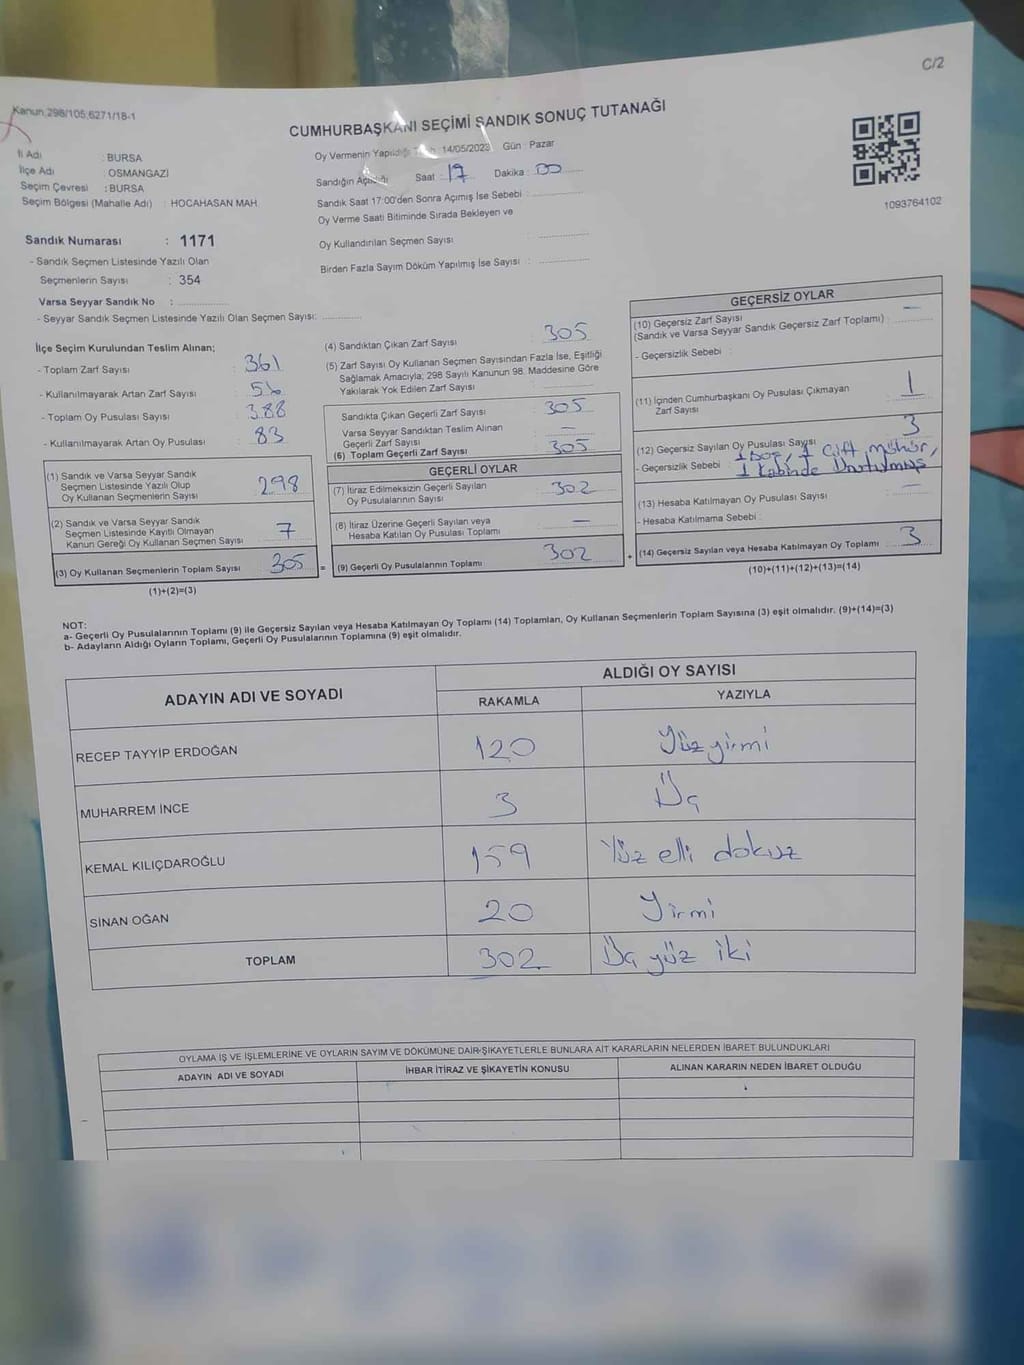 C/2
Kanun:298/105;6271/18-1
CUMHURBAŞKANI SEÇİMİ SANDIK SONUÇ TUTANAĞI
İl Adı : BURSA
İlçe Adı : OSMANGAZİ
Seçim Çevresi : BURSA
Seçim Bölgesi (Mahalle Adı) : HOCAHASAN MAH.
Oy Vermenin Yapıldığı : 14/05/2023 Gün : Pazar
Sandığın Açıldığı Saat : 17 Dakika : 00
Sandık Saat 17:00'den Sonra Açımış İse Sebebi :
Oy Verme Saati Bitiminde Sırada Bekleyen ve
Oy Kullandırılan Seçmen Sayısı :
Birden Fazla Sayım Döküm Yapılmış İse Sayısı :
1093764102
Sandık Numarası : 1171
- Sandık Seçmen Listesinde Yazılı Olan
Seçmenlerin Sayısı : 354
Varsa Seyyar Sandık No :
- Seyyar Sandık Seçmen Listesinde Yazılı Olan Seçmen Sayısı:
İlçe Seçim Kurulundan Teslim Alınan;
- Toplam Zarf Sayısı : 361
- Kullanılmayarak Artan Zarf Sayısı : 56
- Toplam Oy Pusulası Sayısı : 388
- Kullanılmayarak Artan Oy Pusulası : 83
(1) Sandık ve Varsa Seyyar Sandık
Seçmen Listesinde Yazılı Olup
Oy Kullanan Seçmenlerin Sayısı 298
(2) Sandık ve Varsa Seyyar Sandık
Seçmen Listesinde Kayıtlı Olmayan
Kanun Gereği Oy Kullanan Seçmen Sayısı 7
(3) Oy Kullanan Seçmenlerin Toplam Sayısı 305 =
(1)+(2)=(3)
(4) Sandıktan Çıkan Zarf Sayısı : 305
(5) Zarf Sayısı Oy Kullanan Seçmen Sayısından Fazla İse, Eşitliği
Sağlamak Amacıyla; 298 Sayılı Kanunun 98. Maddesine Göre
Yakılarak Yok Edilen Zarf Sayısı :
Sandıkta Çıkan Geçerli Zarf Sayısı : 305
Varsa Seyyar Sandıktan Teslim Alınan
Geçerli Zarf Sayısı : –
(6) Toplam Geçerli Zarf Sayısı : 305
GEÇERLİ OYLAR
(7) İtiraz Edilmeksizin Geçerli Sayılan
Oy Pusulalarının Sayısı : 302
(8) İtiraz Üzerine Geçerli Sayılan veya
Hesaba Katılan Oy Pusulası Toplamı : –
(9) Geçerli Oy Pusulalarının Toplamı 302 +
GEÇERSİZ OYLAR
(10) Geçersiz Zarf Sayısı –
(Sandık ve Varsa Seyyar Sandık Geçersiz Zarf Toplamı) :
- Geçersizlik Sebebi :
(11) İçinden Cumhurbaşkanı Oy Pusulası Çıkmayan
Zarf Sayısı 1
(12) Geçersiz Sayılan Oy Pusulası Sayısı 3
- Geçersizlik Sebebi : 1 boş, 1 çift mühür,
1 Kabinde
(13) Hesaba Katılmayan Oy Pusulası Sayısı –
- Hesaba Katılmama Sebebi :
(14) Geçersiz Sayılan veya Hesaba Katılmayan Oy Toplamı 3
(10)+(11)+(12)+(13)=(14)
NOT:
a- Geçerli Oy Pusulalarının Toplamı (9) ile Geçersiz Sayılan veya Hesaba Katılmayan Oy Toplamı (14) Toplamları, Oy Kullanan Seçmenlerin Toplam Sayısına (3) eşit olmalıdır. (9)+(14)=(3)
b- Adayların Aldığı Oyların Toplamı, Geçerli Oy Pusulalarının Toplamına (9) eşit olmalıdır.
ADAYIN ADI VE SOYADI ALDIĞI OY SAYISI
RAKAMLA YAZIYLA
RECEP TAYYİP ERDOĞAN 120 Yüz yirmi
MUHARREM İNCE 3 Üç
KEMAL KILIÇDAROĞLU 159 Yüz elli dokuz
SİNAN OĞAN 20 Yirmi
TOPLAM 302 Üç yüz iki
OYLAMA İŞ VE İŞLEMLERİNE VE OYLARIN SAYIM VE DÖKÜMÜNE DAİR ŞİKAYETLERLE BUNLARA AİT KARARLARIN NELERDEN İBARET BULUNDUKLARI
ADAYIN ADI VE SOYADI İHBAR İTİRAZ VE ŞİKAYETİN KONUSU ALINAN KARARIN NEDEN İBARET OLDUĞU